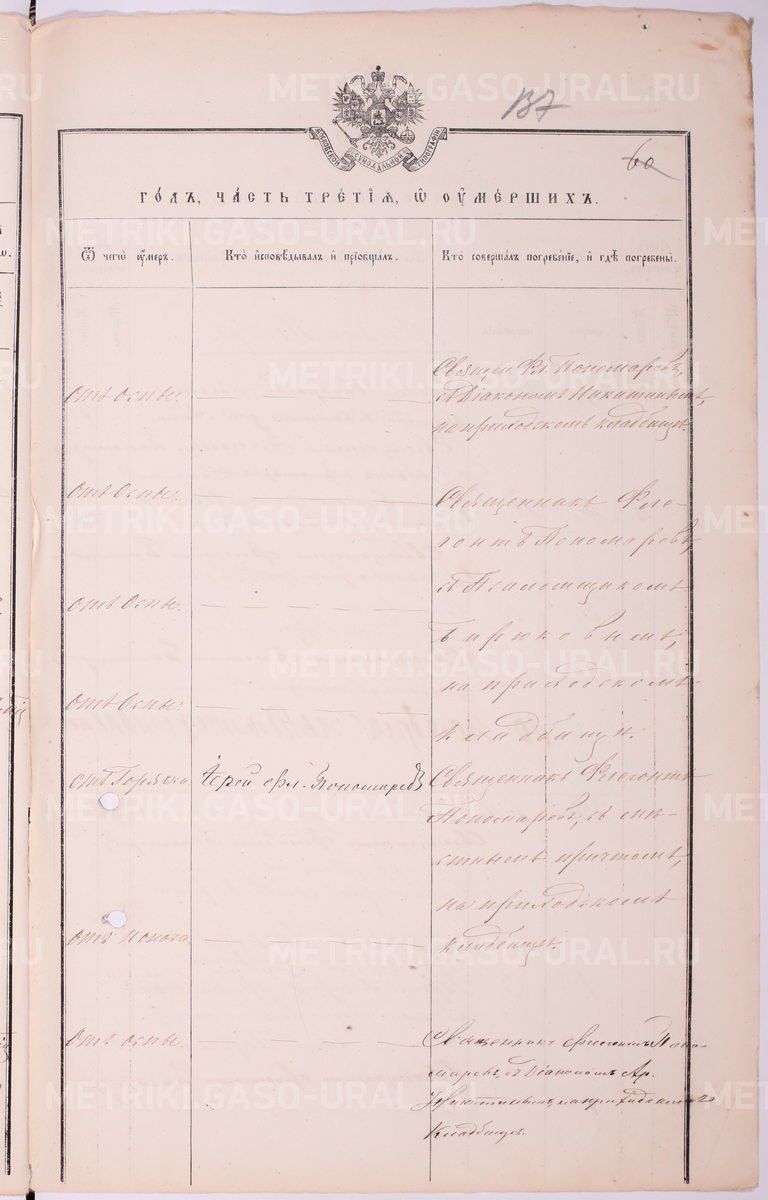 137
60
МОСКОВСКОЙ СѴНОДАЛЬНОЙ ТИПОГРАФІИ
ГО́ДЪ, ЧА́СТЬ ТРЕ́ТІѦ, Ѿ ОУ҆МЕ́РШИХЪ.
Ѿ чегѡ̀ ᲂу҆́меръ.
Кто̀ и҆сповѣ́дывалъ и҆ прїобща́лъ.
Кто̀ соверша́лъ погребе́нїе, и҆ гдѣ̀ погребены̀.
отъ оспы.
Священ. Фл. Пономаревъ,
съ Діакономъ Никитинымъ,
на приходскомъ кладбищѣ.
отъ Оспы.
Священникъ Фле-
гонтъ Пономаревъ,
съ Псаломщикомъ
Бирюковымъ,
на приходскомъ
кладбищѣ.
отъ Оспы.
отъ Оспы.
отъ Горячки
Іерей Фл. Пономаревъ
Священникъ Флегонтъ
Пономаревъ, съ мѣ-
стнымъ причтомъ,
на приходскомъ
кладбищѣ.
отъ поноса
отъ оспы.
Священникъ Флегонтъ Поно-
маревъ, съ Діакономъ Ар.
Никитинымъ, на приходскомъ
кладбищѣ.
METRIKI.GASO-URAL.RU